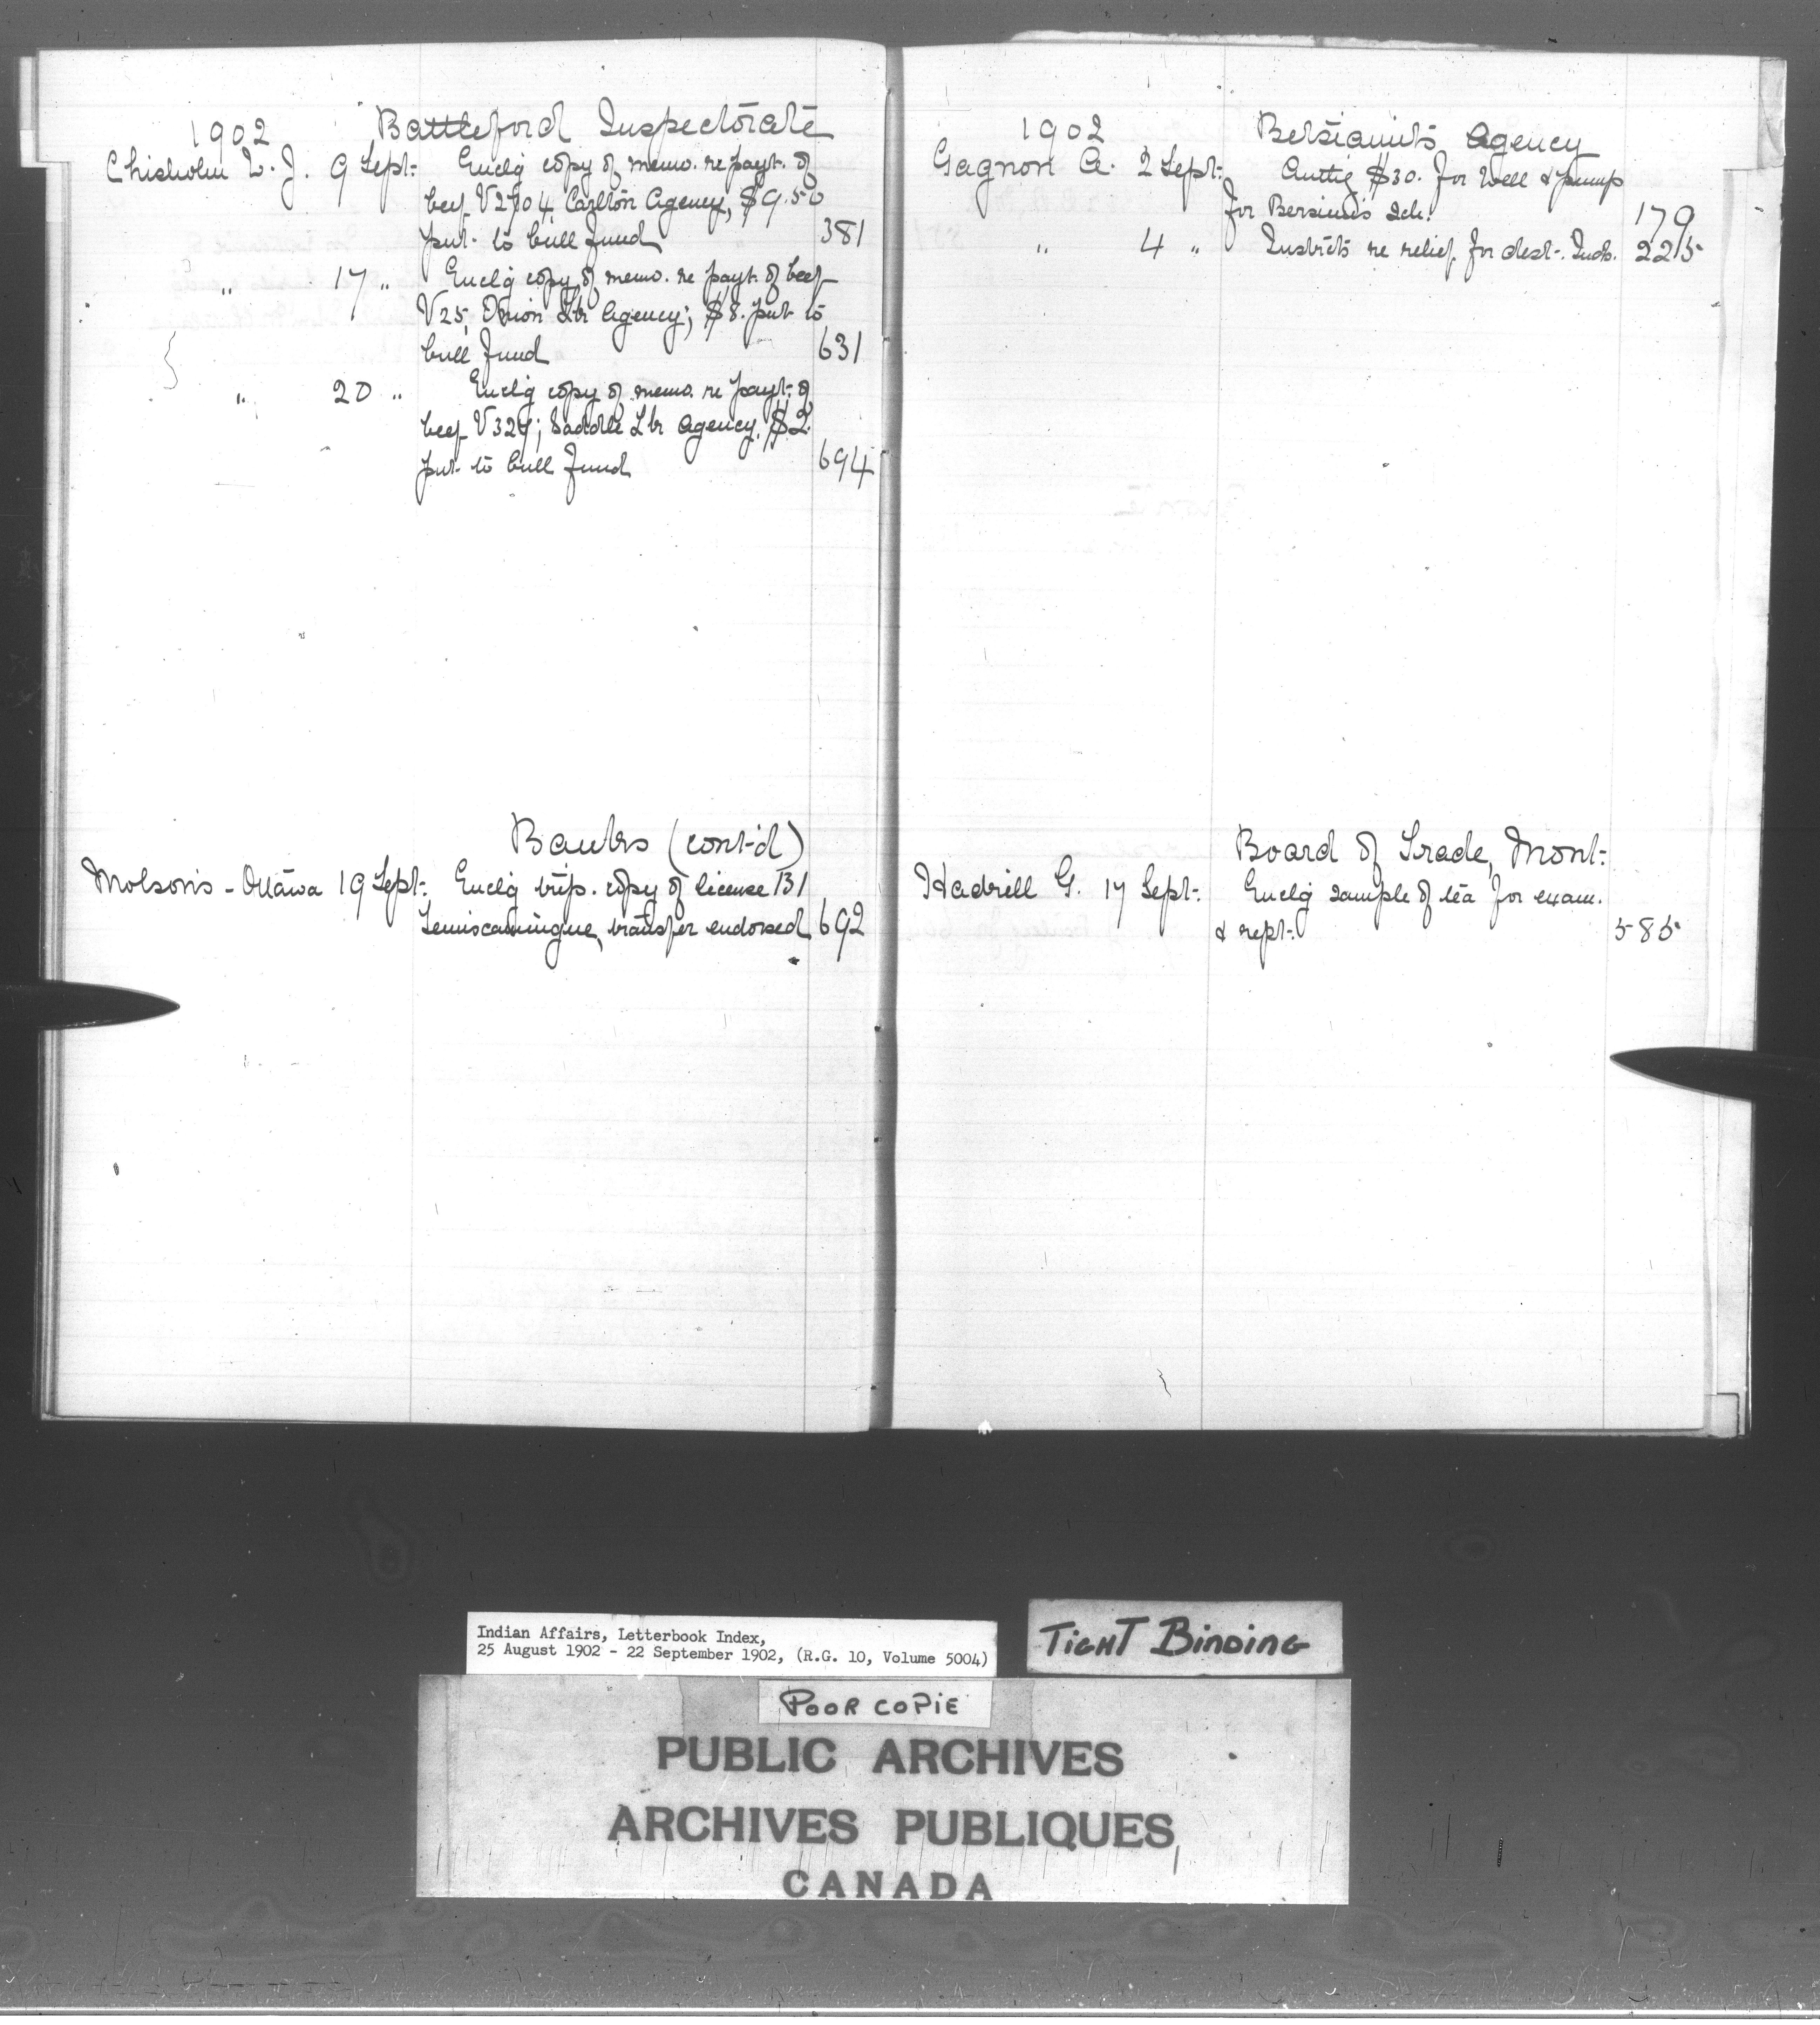 1902 Battleford Inspectorate
Chisholm W. J. 9 Sept. Enclg copy of memo. re payt. of
beef V2704 Carlton Agency, $9.50
put to bull fund 381
" 17 " Enclg copy of memo. re payt. of beef
V25, Onion Lk Agency; $8. put to
bull fund 631
" 20 " Enclg copy of memo. re payt. of
beef V324; Saddle Lk Agency, $2.
put to bull fund 694
Banks (cont'd)
Molson's - Ottawa 19 Sept. Enclg trip. copy of license 131
Temiscamingue, transfer endorsed 692
1902 Betsiamits Agency
Gagnon A. 2 Sept. Authg $30. for well & pump
for Bersimis Sch. 179
" 4 " Instrcts re relief for dest. Inds. 225
Board of Trade, Mont.
Hadrill G. 17 Sept. Enclg sample of tea for exam.
& rept. 585
Indian Affairs, Letterbook Index,
25 August 1902 - 22 September 1902, (R.G. 10, Volume 5004)
TIGHT BINDING
POOR COPIE
PUBLIC ARCHIVES
ARCHIVES PUBLIQUES
CANADA